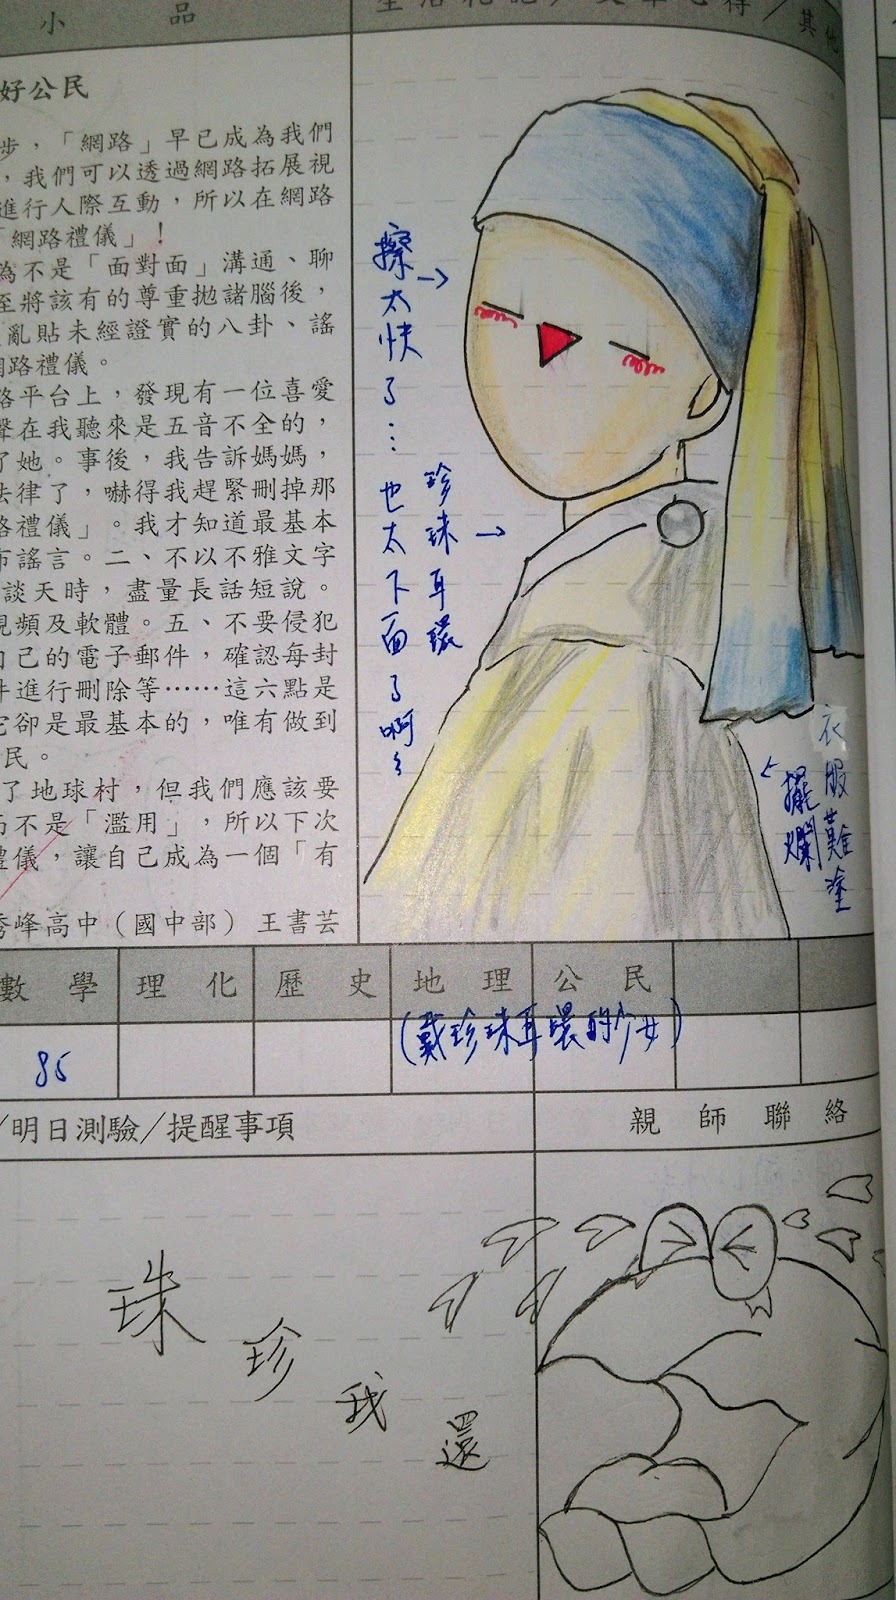 小品
生活札記／
心得／其他
好公民
步，「網路」早已成為我們
，我們可以透過網路拓展視
進行人際互動，所以在網路
「網路禮儀」！
為不是「面對面」溝通、聊
至將該有的尊重拋諸腦後，
亂貼未經證實的八卦、謠
網路禮儀。
路平台上，發現有一位喜愛
聲在我聽來是五音不全的，
了她。事後，我告訴媽媽，
法律了，嚇得我趕緊刪掉那
路禮儀」。我才知道最基本
布謠言。二、不以不雅文字
談天時，盡量長話短說。
視頻及軟體。五、不要侵犯
自己的電子郵件，確認每封
件進行刪除等……這六點是
它卻是最基本的，唯有做到
民。
了地球村，但我們應該要
而不是「濫用」，所以下次
禮儀，讓自己成為一個「有
秀峰高中（國中部）王書芸
擦太快了…也太下面了啊
珍珠耳環
衣服難塗
擺爛
數學
理化
歷史
地理
公民
85
(戴珍珠耳環的少女)
／明日測驗／提醒事項
親師聯絡
還我珍珠